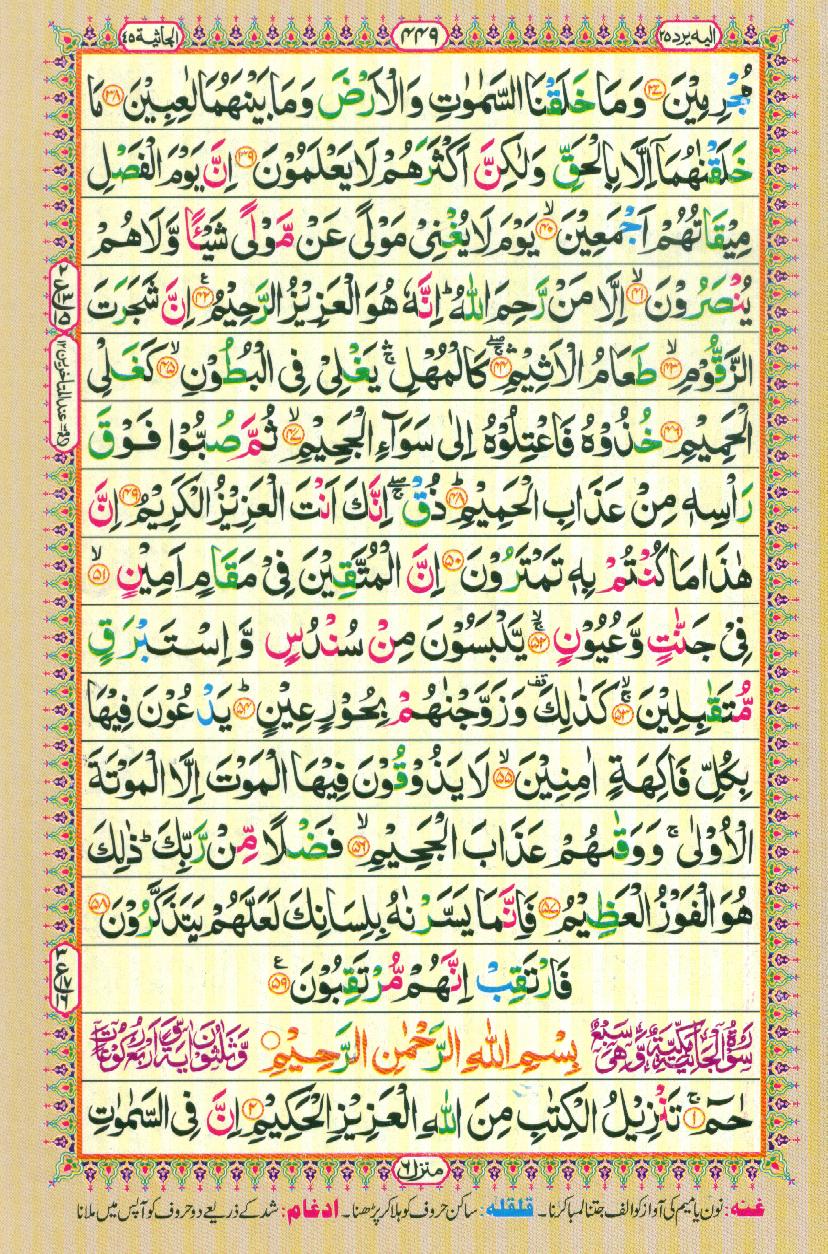 الیه یرد ۲۵
۴۴۹
الجاثیة ۴۵
مُجْرِمِيْنَ ﴿۳۷﴾ وَمَا خَلَقْنَا السَّمٰوٰتِ وَالْاَرْضَ وَمَا بَيْنَهُمَا لٰعِبِيْنَ ﴿۳۸﴾ مَا
خَلَقْنٰهُمَاۤ اِلَّا بِالْحَقِّ وَلٰكِنَّ اَكْثَرَهُمْ لَا يَعْلَمُوْنَ ﴿۳۹﴾ اِنَّ يَوْمَ الْفَصْلِ
مِيْقَاتُهُمْ اَجْمَعِيْنَ ﴿۴۰﴾ۙ يَوْمَ لَا يُغْنِىْ مَوْلًى عَنْ مَّوْلًى شَيْـًٔا وَّلَا هُمْ
يُنْصَرُوْنَ ﴿۴۱﴾ۙ اِلَّا مَنْ رَّحِمَ اللّٰهُ ؕ اِنَّهٗ هُوَ الْعَزِيْزُ الرَّحِيْمُ ﴿۴۲﴾ع اِنَّ شَجَرَتَ
الزَّقُّوْمِ ﴿۴۳﴾ۙ طَعَامُ الْاَثِيْمِ ﴿۴۴﴾ ۛۚ كَالْمُهْلِ ۛۚ يَغْلِىْ فِى الْبُطُوْنِ ﴿۴۵﴾ۙ كَغَلْىِ
الْحَمِيْمِ ﴿۴۶﴾ خُذُوْهُ فَاعْتِلُوْهُ اِلٰى سَوَآءِ الْجَحِيْمِ ﴿۴۷﴾ۙ ثُمَّ صُبُّوْا فَوْقَ
رَاْسِهٖ مِنْ عَذَابِ الْحَمِيْمِ ﴿۴۸﴾ؕ ذُقْ ۙۚ اِنَّكَ اَنْتَ الْعَزِيْزُ الْكَرِيْمُ ﴿۴۹﴾ اِنَّ
هٰذَا مَا كُنْتُمْ بِهٖ تَمْتَرُوْنَ ﴿۵۰﴾ اِنَّ الْمُتَّقِيْنَ فِىْ مَقَامٍ اَمِيْنٍ ﴿۵۱﴾ۙ
فِىْ جَنّٰتٍ وَّعُيُوْنٍ ﴿۵۲﴾ۚۙ يَّلْبَسُوْنَ مِنْ سُنْدُسٍ وَّ اِسْتَبْرَقٍ
مُّتَقٰبِلِيْنَ ﴿۵۳﴾ۚۙ كَذٰلِكَ قف وَزَوَّجْنٰهُمْ بِحُوْرٍ عِيْنٍ ﴿۵۴﴾ؕ يَدْعُوْنَ فِيْهَا
بِكُلِّ فَاكِهَةٍ اٰمِنِيْنَ ﴿۵۵﴾ۙ لَا يَذُوْقُوْنَ فِيْهَا الْمَوْتَ اِلَّا الْمَوْتَةَ
الْاُوْلٰى ۚ وَوَقٰىهُمْ عَذَابَ الْجَحِيْمِ ﴿۵۶﴾ۙ فَضْلًا مِّنْ رَّبِّكَ ؕ ذٰلِكَ
هُوَ الْفَوْزُ الْعَظِيْمُ ﴿۵۷﴾ فَاِنَّمَا يَسَّرْنٰهُ بِلِسَانِكَ لَعَلَّهُمْ يَتَذَكَّرُوْنَ ﴿۵۸﴾
فَارْتَقِبْ اِنَّهُمْ مُّرْتَقِبُوْنَ ﴿۵۹﴾ع
سُوْرَةُ الْجَاثِيَةِ مَكِّيَّةٌ وَّهِىَ سَبْعٌ بِسْمِ اللّٰهِ الرَّحْمٰنِ الرَّحِيْمِ وَّثَلٰثُوْنَ اٰيَةً وَّاَرْبَعُ رُكُوْعَاتٍ
حٰمٓ ﴿۱﴾ۚ تَنْزِيْلُ الْكِتٰبِ مِنَ اللّٰهِ الْعَزِيْزِ الْحَكِيْمِ ﴿۲﴾ اِنَّ فِى السَّمٰوٰتِ
منزل ۶
غنہ: نون یا میم کی آواز کو الف جتنا لمبا کرنا۔ قلقلہ: ساکن حروف کو ہلا کر پڑھنا۔ ادغام: شد کے ذریعے دو حروف کو آپس میں ملانا